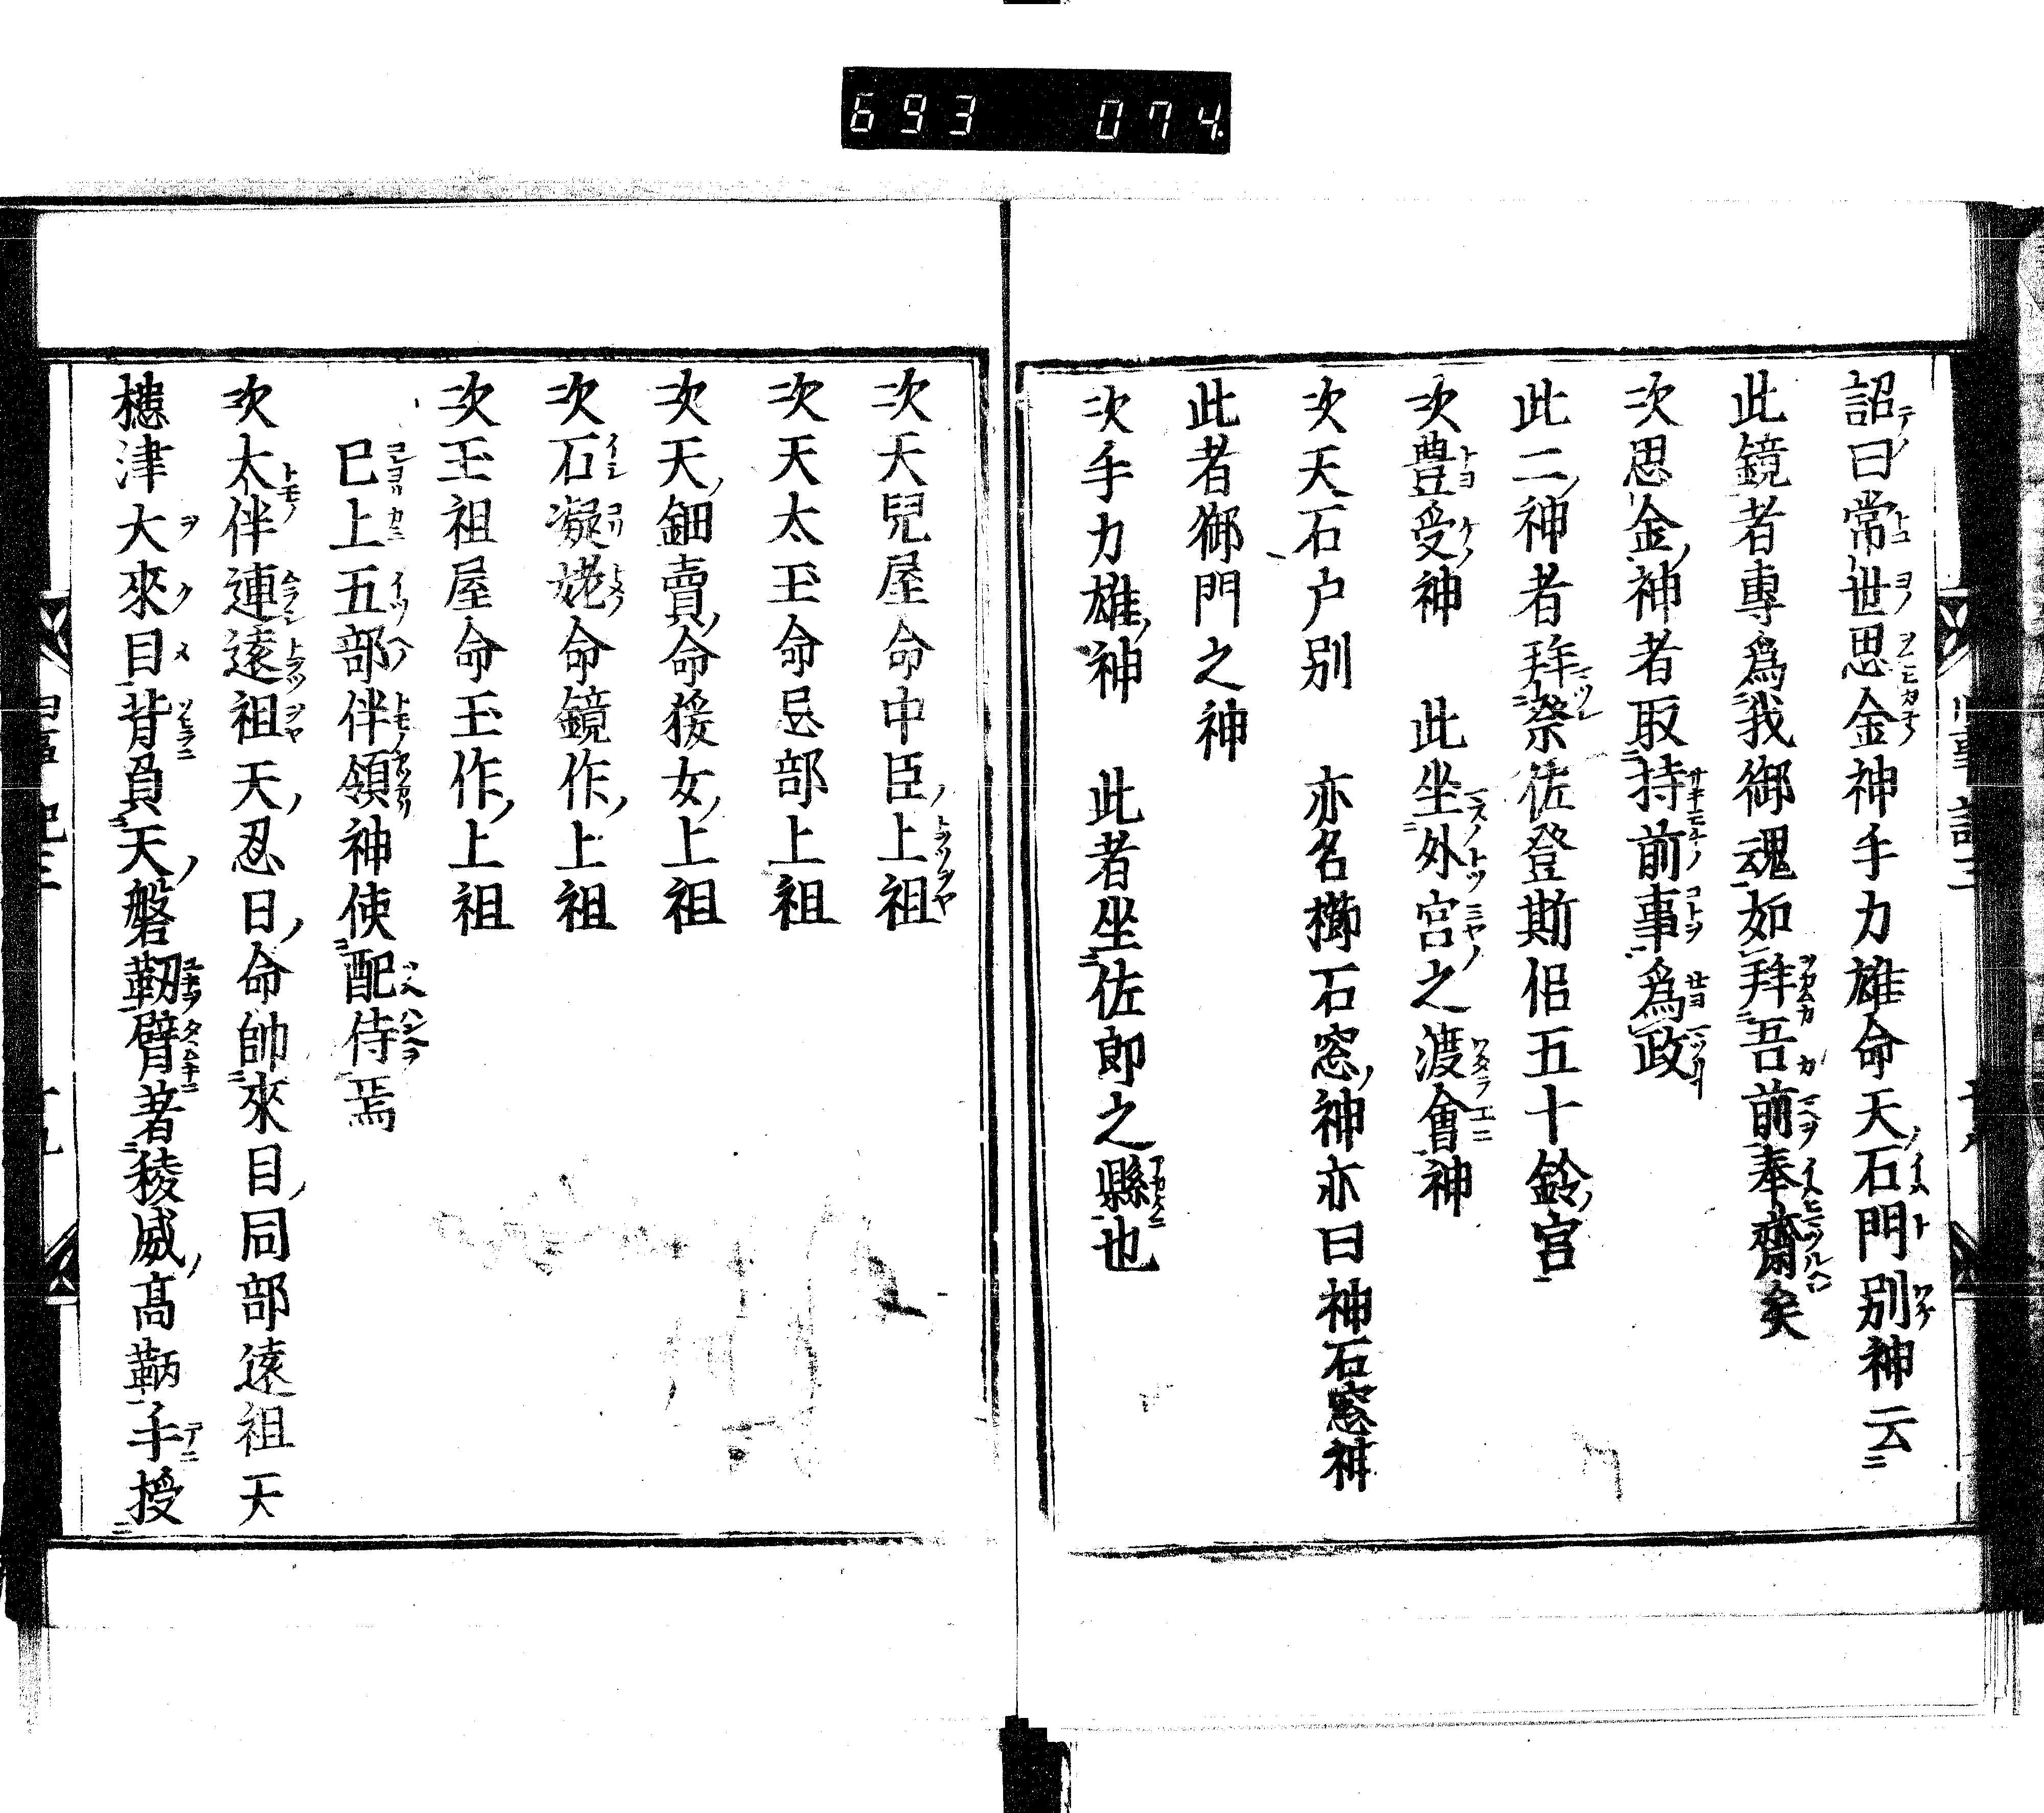 693 074
詔曰常世思金神手力雄命天石門別神云
此鏡者專爲我御魂如拜吾前奉齋矣
次思金神者取持前事爲政
此二神者拜祭佐登斯侶五十鈴宮
次豊受神 此坐外宮之渡會神
次天石戸别 亦名櫛石窓神亦曰神石窓神
此者御門之神
次手力雄神 此者坐佐郎之縣也
次天兒屋命中臣上祖
次天太玉命忌部上祖
次天鈿賣命猨女上祖
次石凝姥命鏡作上祖
次玉祖屋命玉作上祖
已上五部伴領神使配侍焉
次太伴連遠祖天忍日命帥來目同部遠祖天
槵津大來目背負天磐靫臂著稜威高鞆手授